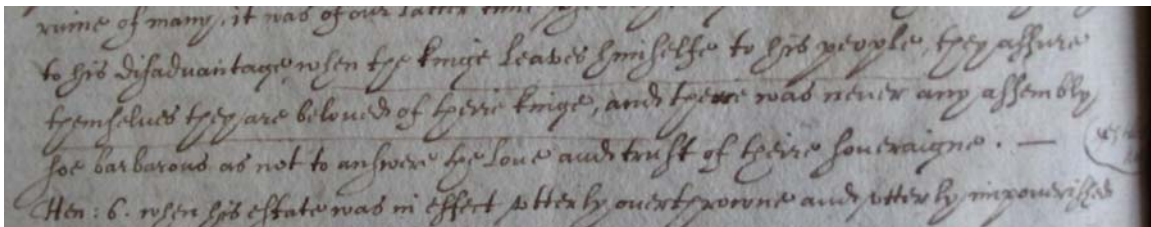 ruine of many, it was of our latter time
to his disaduantage, when the kinge leaves himselfe to his people, they assure
themselues they are beloued of theire kinge, and there was neuer any assembly
soe barbarous as not to answere the loue and trust of theire soueraigne. —
Hen: 6. when his estate was in effect vtterly ouerthrowne and vtterly impouerished